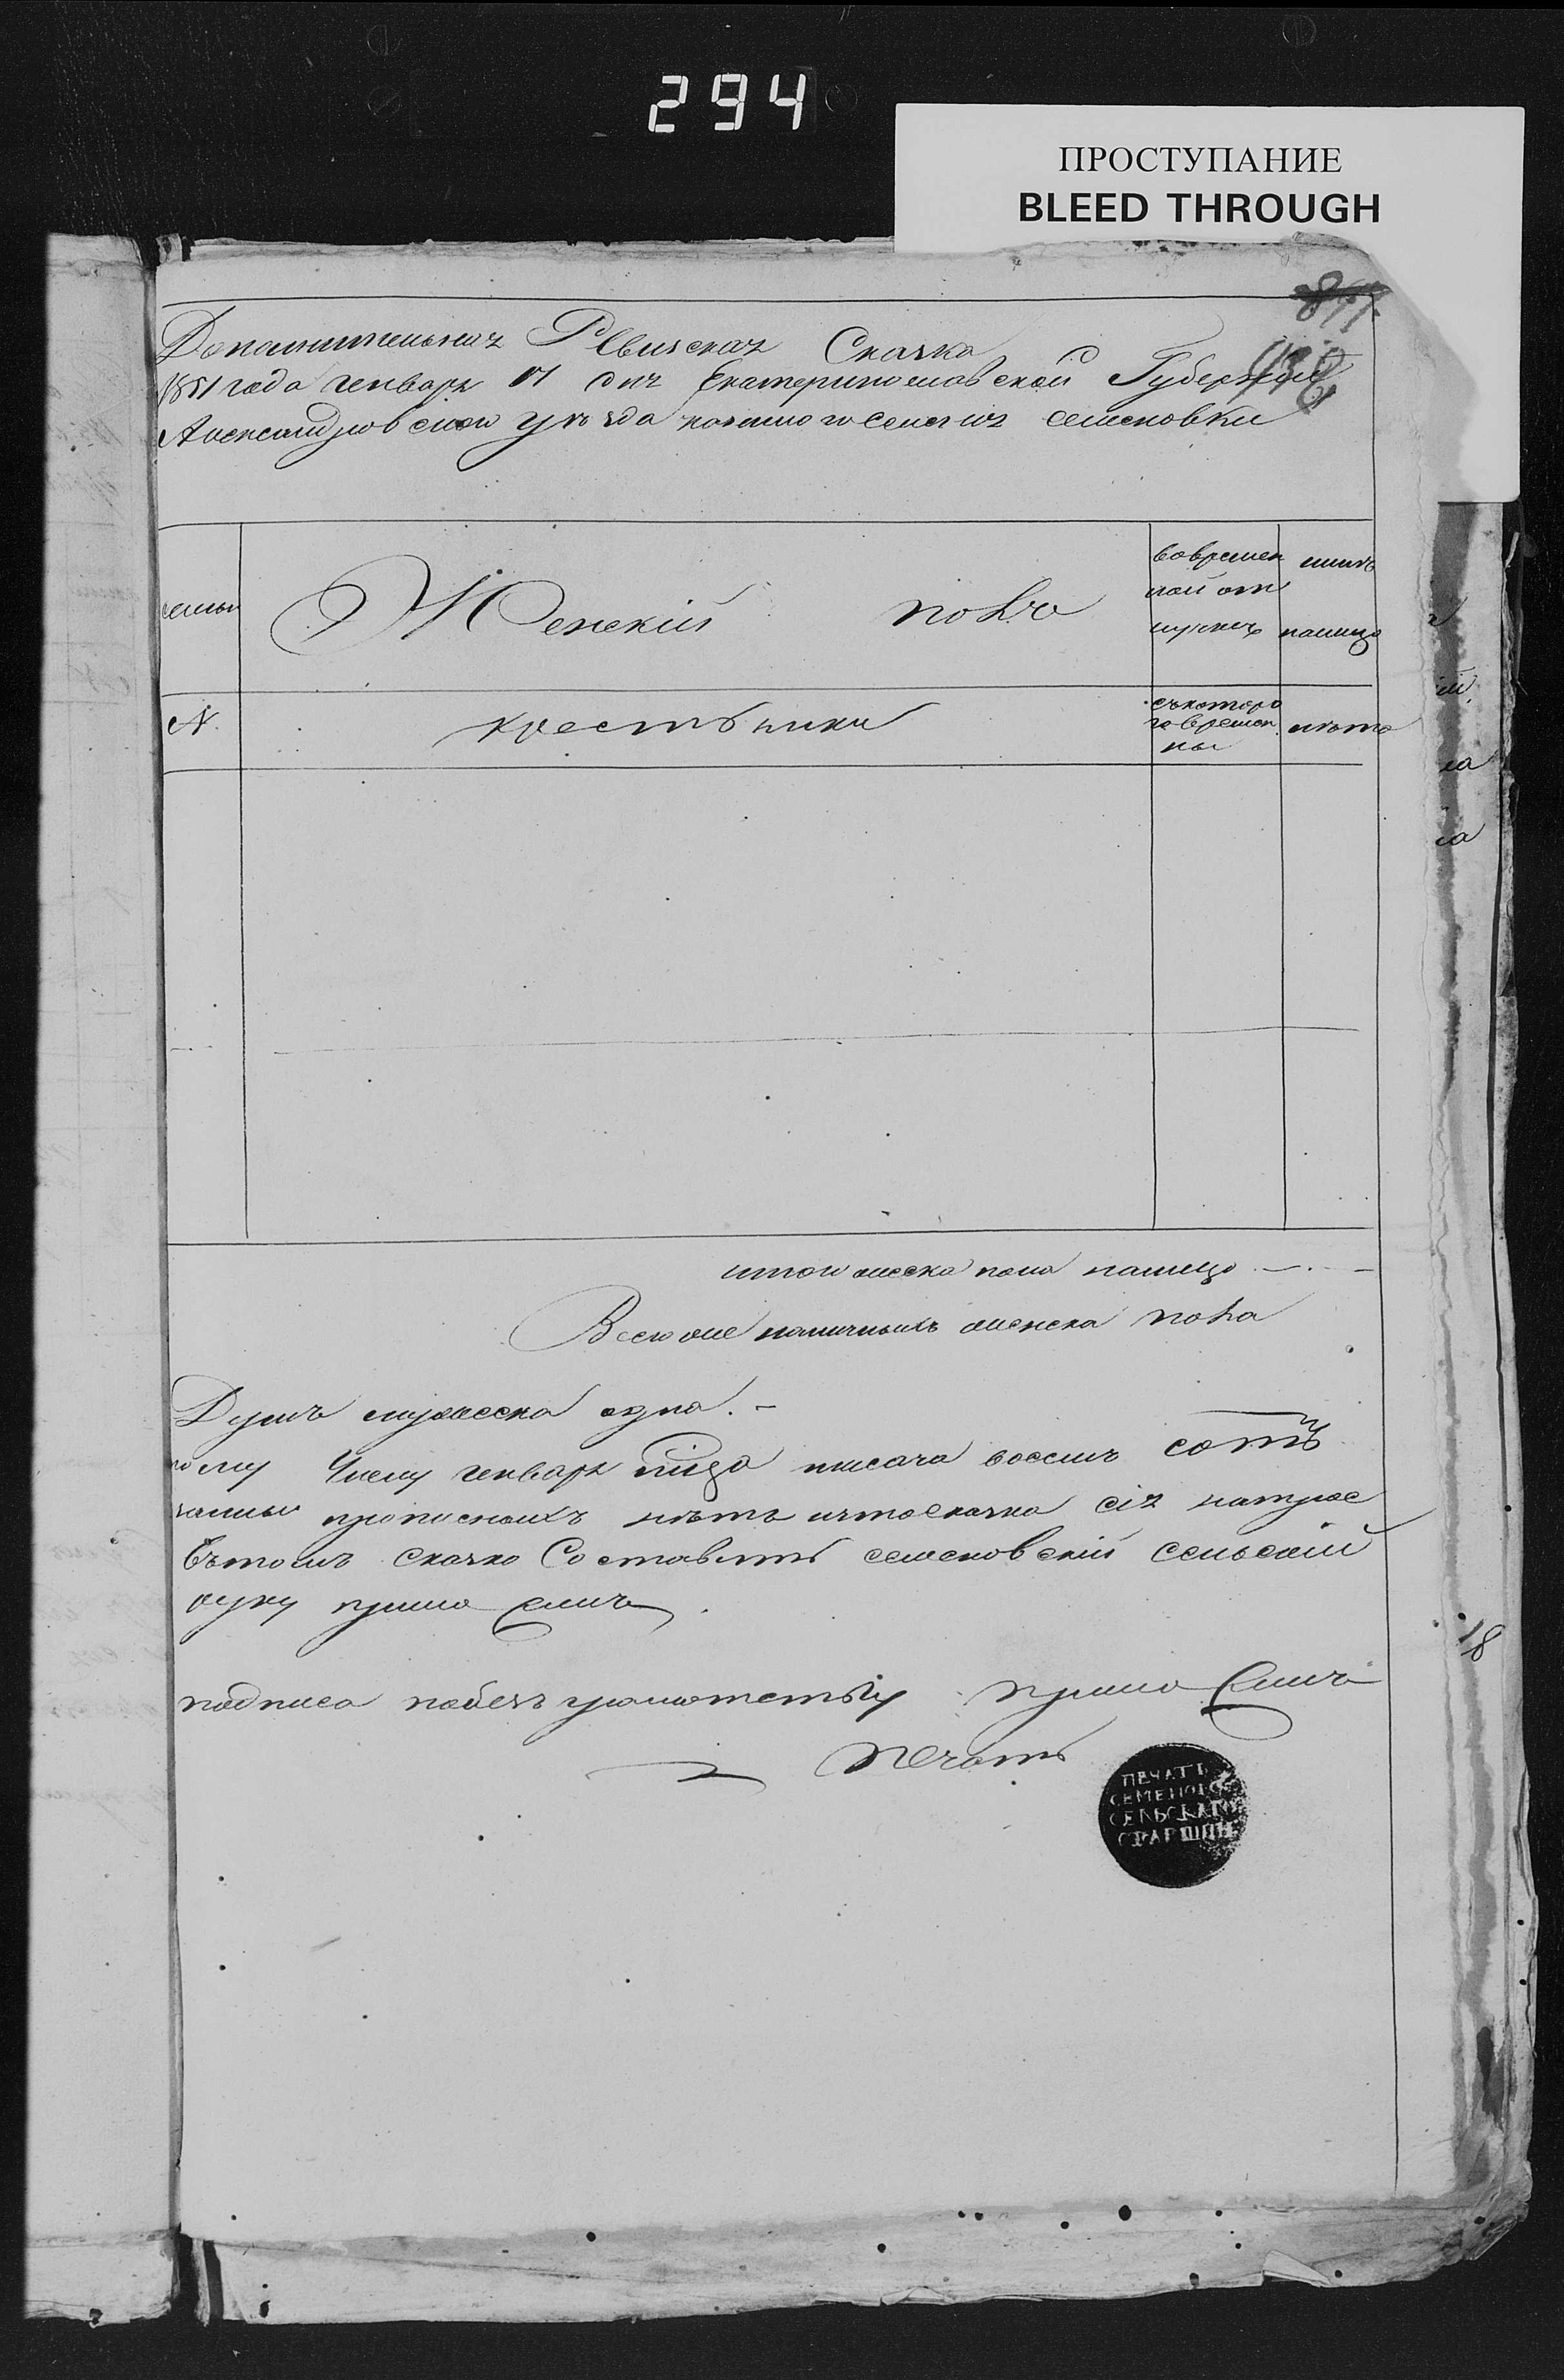 294
ПРОСТУПАНИЕ
BLEED THROUGH
877
438
Дополнительная Ревиская Скаска
1851 года генваря 17 дня Екатеринославской Губернии
Александровскои уѣзда козенного селения семеновки
семьи
Женскій полъ
вовремен
ной от
лучкѣ
нынѣ
налицо
№
крестьянки
съкоторо
го времен
ны
лѣта
итого женска пола налицо
Всего же наличныхъ женска пола
Душъ мужеска одна.
Числу генваря тысяча восемь сотъ
прописныхъ нѣтъ ичтоскаска сія
Вътомъ Скаско Составилъ семеновскій сельскій
руку приложилъ
подписа приложилъ
печать
ПЕЧАТЬ
СЕМЕНОВС
СЕЛЬСКАГО
СТАРШИН
18